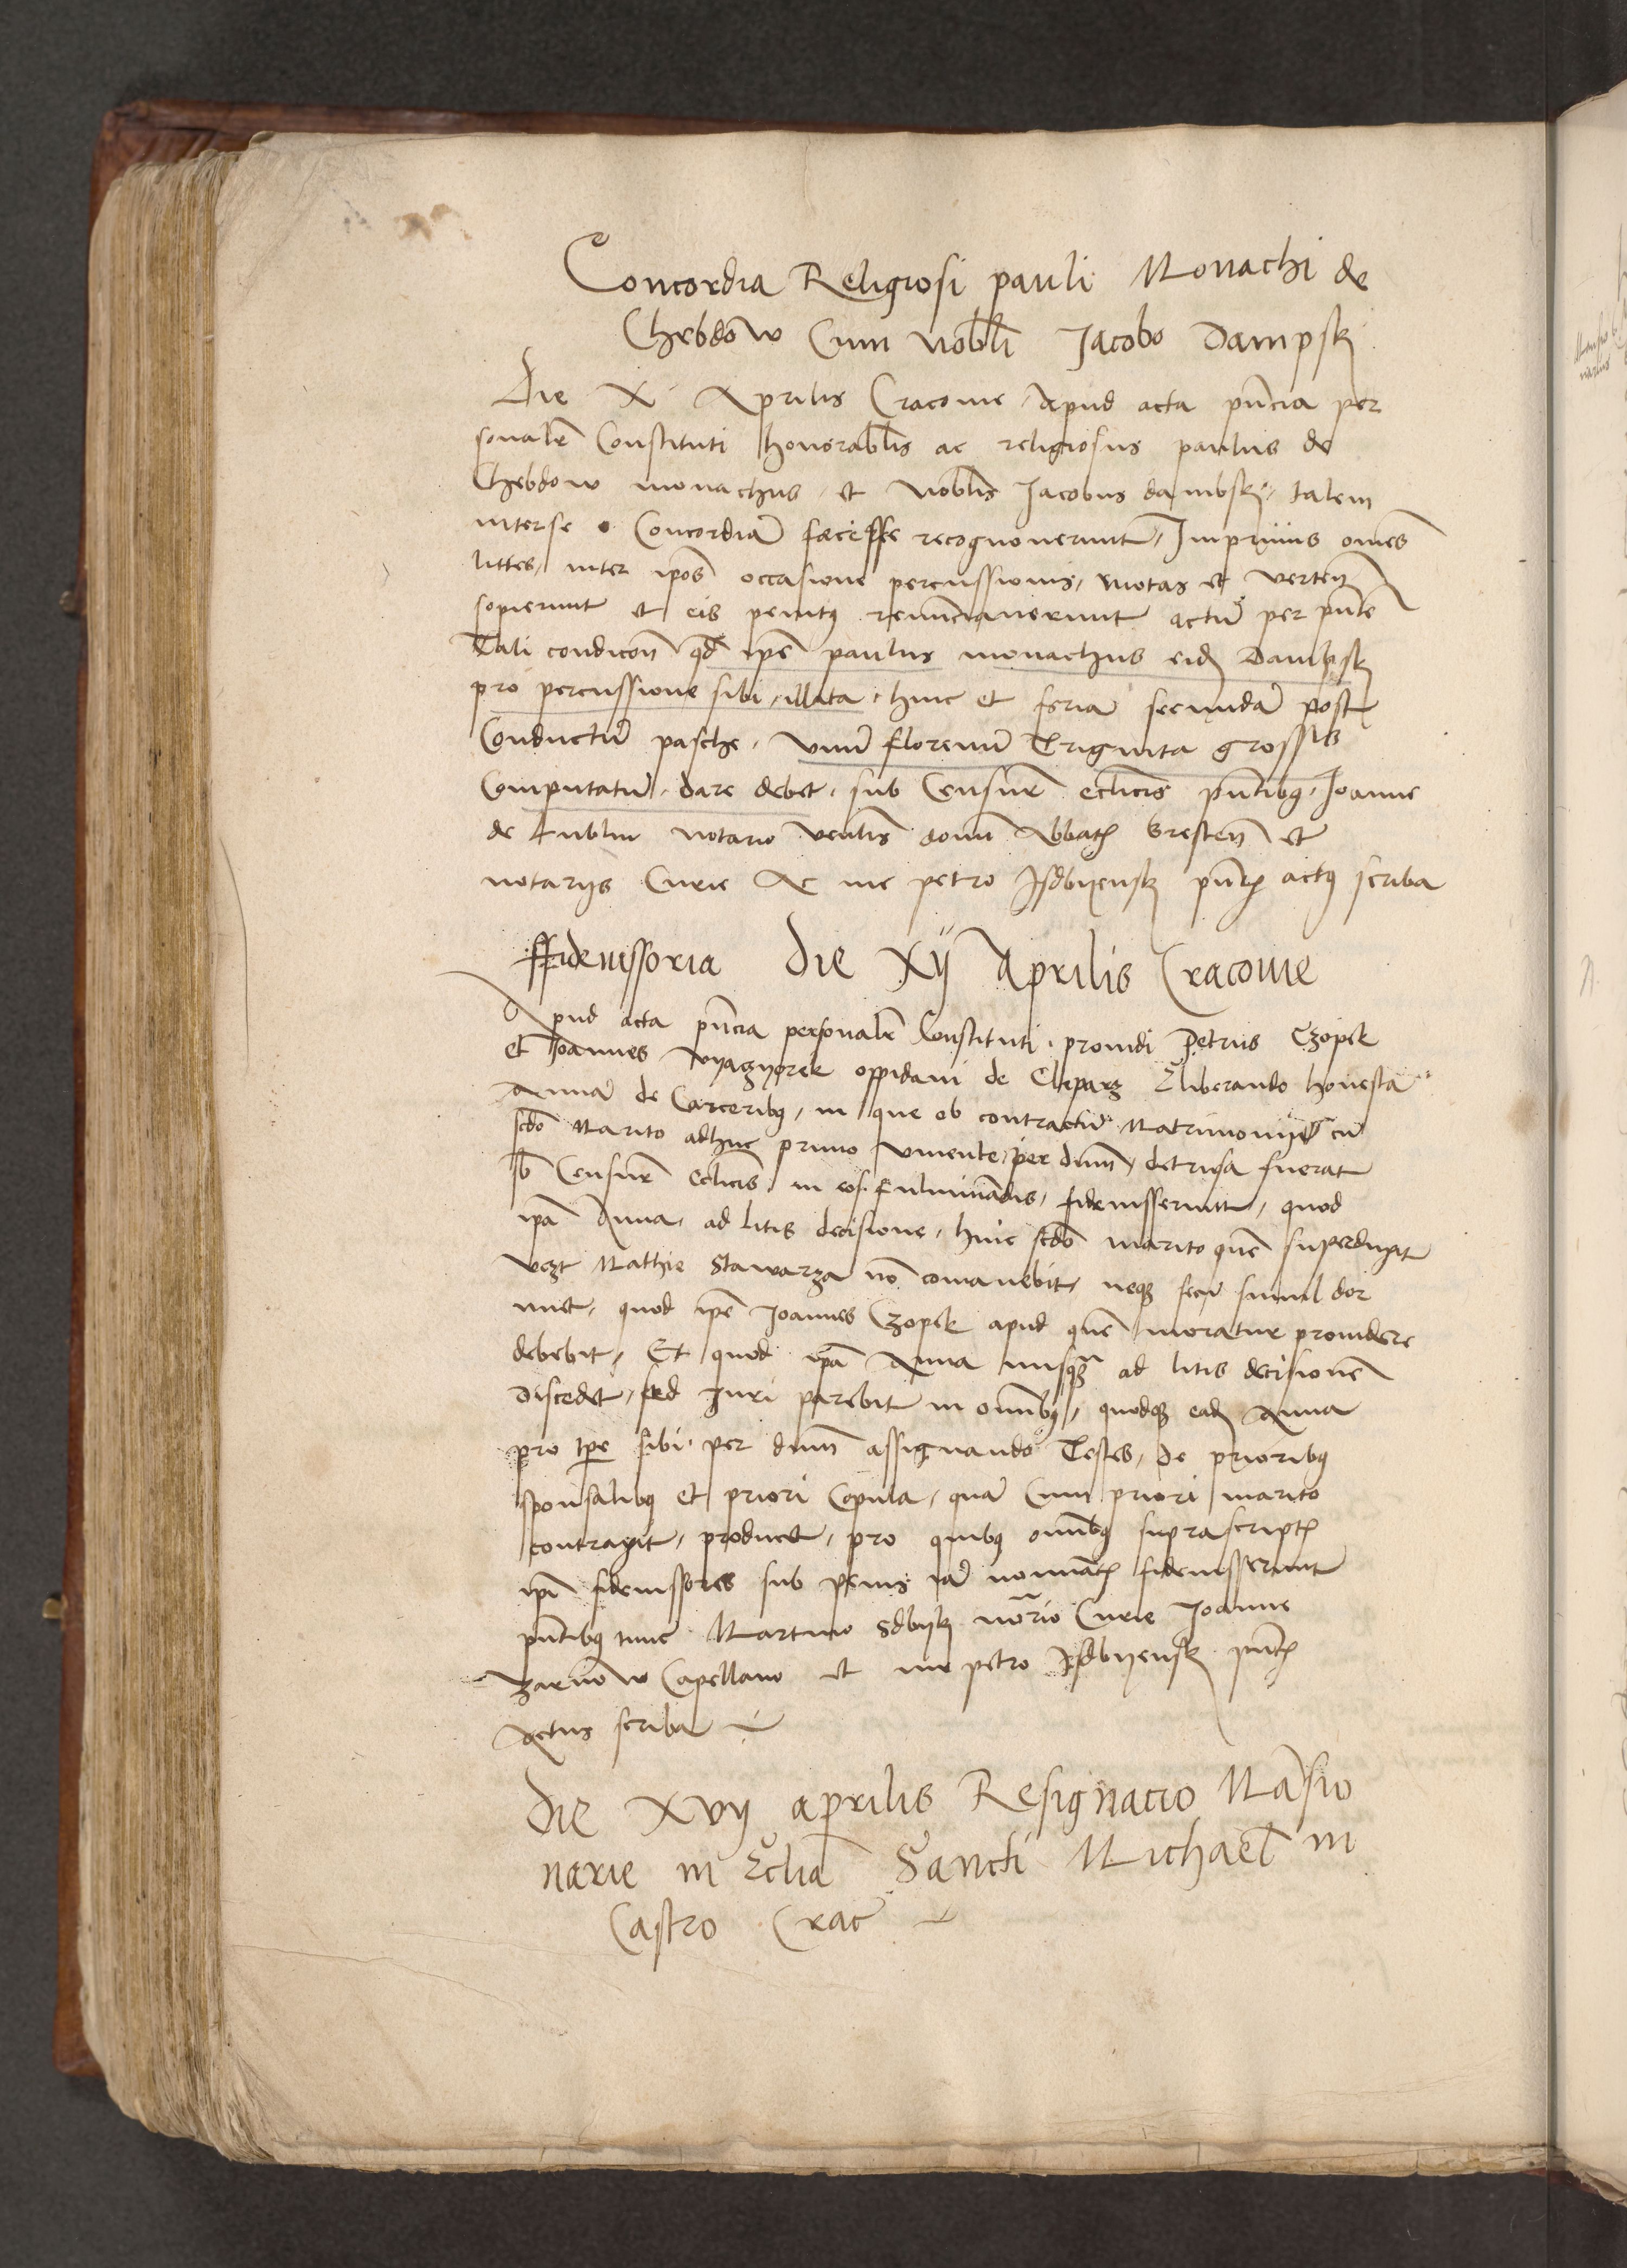 Concordia Religiosi pauli Monachi de
Chebdow Cum nobli Jacobo Dampsk
Die XI Aprilis Cracovie, Apud acta pñcia per
sonalr Constituti honorablis ac religiosus paulus de
Chebdow monachus, et Noblis Jacobus dambski, talem
interse Concordiã fecisse recognoverunt, Inprimis om̃es
littes, inter ipos occasione percussionis, motas et verteñ
sopierunt et eis penitꝰ renũciaverunt actũ per pñte
Tali condicoñ qd ipe paulus monachus eid Dampsk
pro percussione sibi illata, hinc et feriã secundã post
Conductũ pasche, vnũ florenũ Triginta grossis
Computatũ, dare debet, sub Censuris eclicis pñtibꝰ, Joanne
de Lublin notario venlis domi Abbatis Bresteñ et
notarys Curie Ac me petro Jsdbyensk pñtis actꝰ scriba
Ffideiussoria Die Xij Aprilis Cracovie
Apud acta pñcia personalr Constituti, providi Petrus Czopek
et Joannes Vyagyorek oppidani de Cleparz liberando honestã
Annã de Carceribꝰ, in que ob contractũ Matrimonij cũ
scdo Marito adhuc primo vivente, per dnm, detrusa fuerat
sb Censuris eclicis, in eos fulminãdis, fideiusserunt, quod
ipa Anna, ad litis decisione, huic scdo marito quẽ superduxit
vczt Mathie Stawarza nõ comanebit, neqꝫ secũ simul dor
miet, quod ipe Joannes Czopek apud quẽ moratur providere
debebit, Et quod ipa Anna nusqꝫ ad litis decisionẽ
Discedet, sed Juri parebit in omnibꝰ, quodqꝫ ead Anna
pro tpe sibi per dnm assignando Testes, de prioribꝰ
sponsalibꝰ et priori Copula, quã Cum priori marito
contraxit, producet, pro quibꝰ omnibꝰ suprascriptis
ipi fideiussores sub penis iã nominatis fideiusserunt
pñtibꝰ tunc Martino Sdbijk notario Curie Joanne
Zarnow Capellano et me petro Jsdbyensk pñtis
Actus scriba
Die XVij aprilis Resignacio Mãsio
narie in Eclia Sancti Michael in
Castro Crac